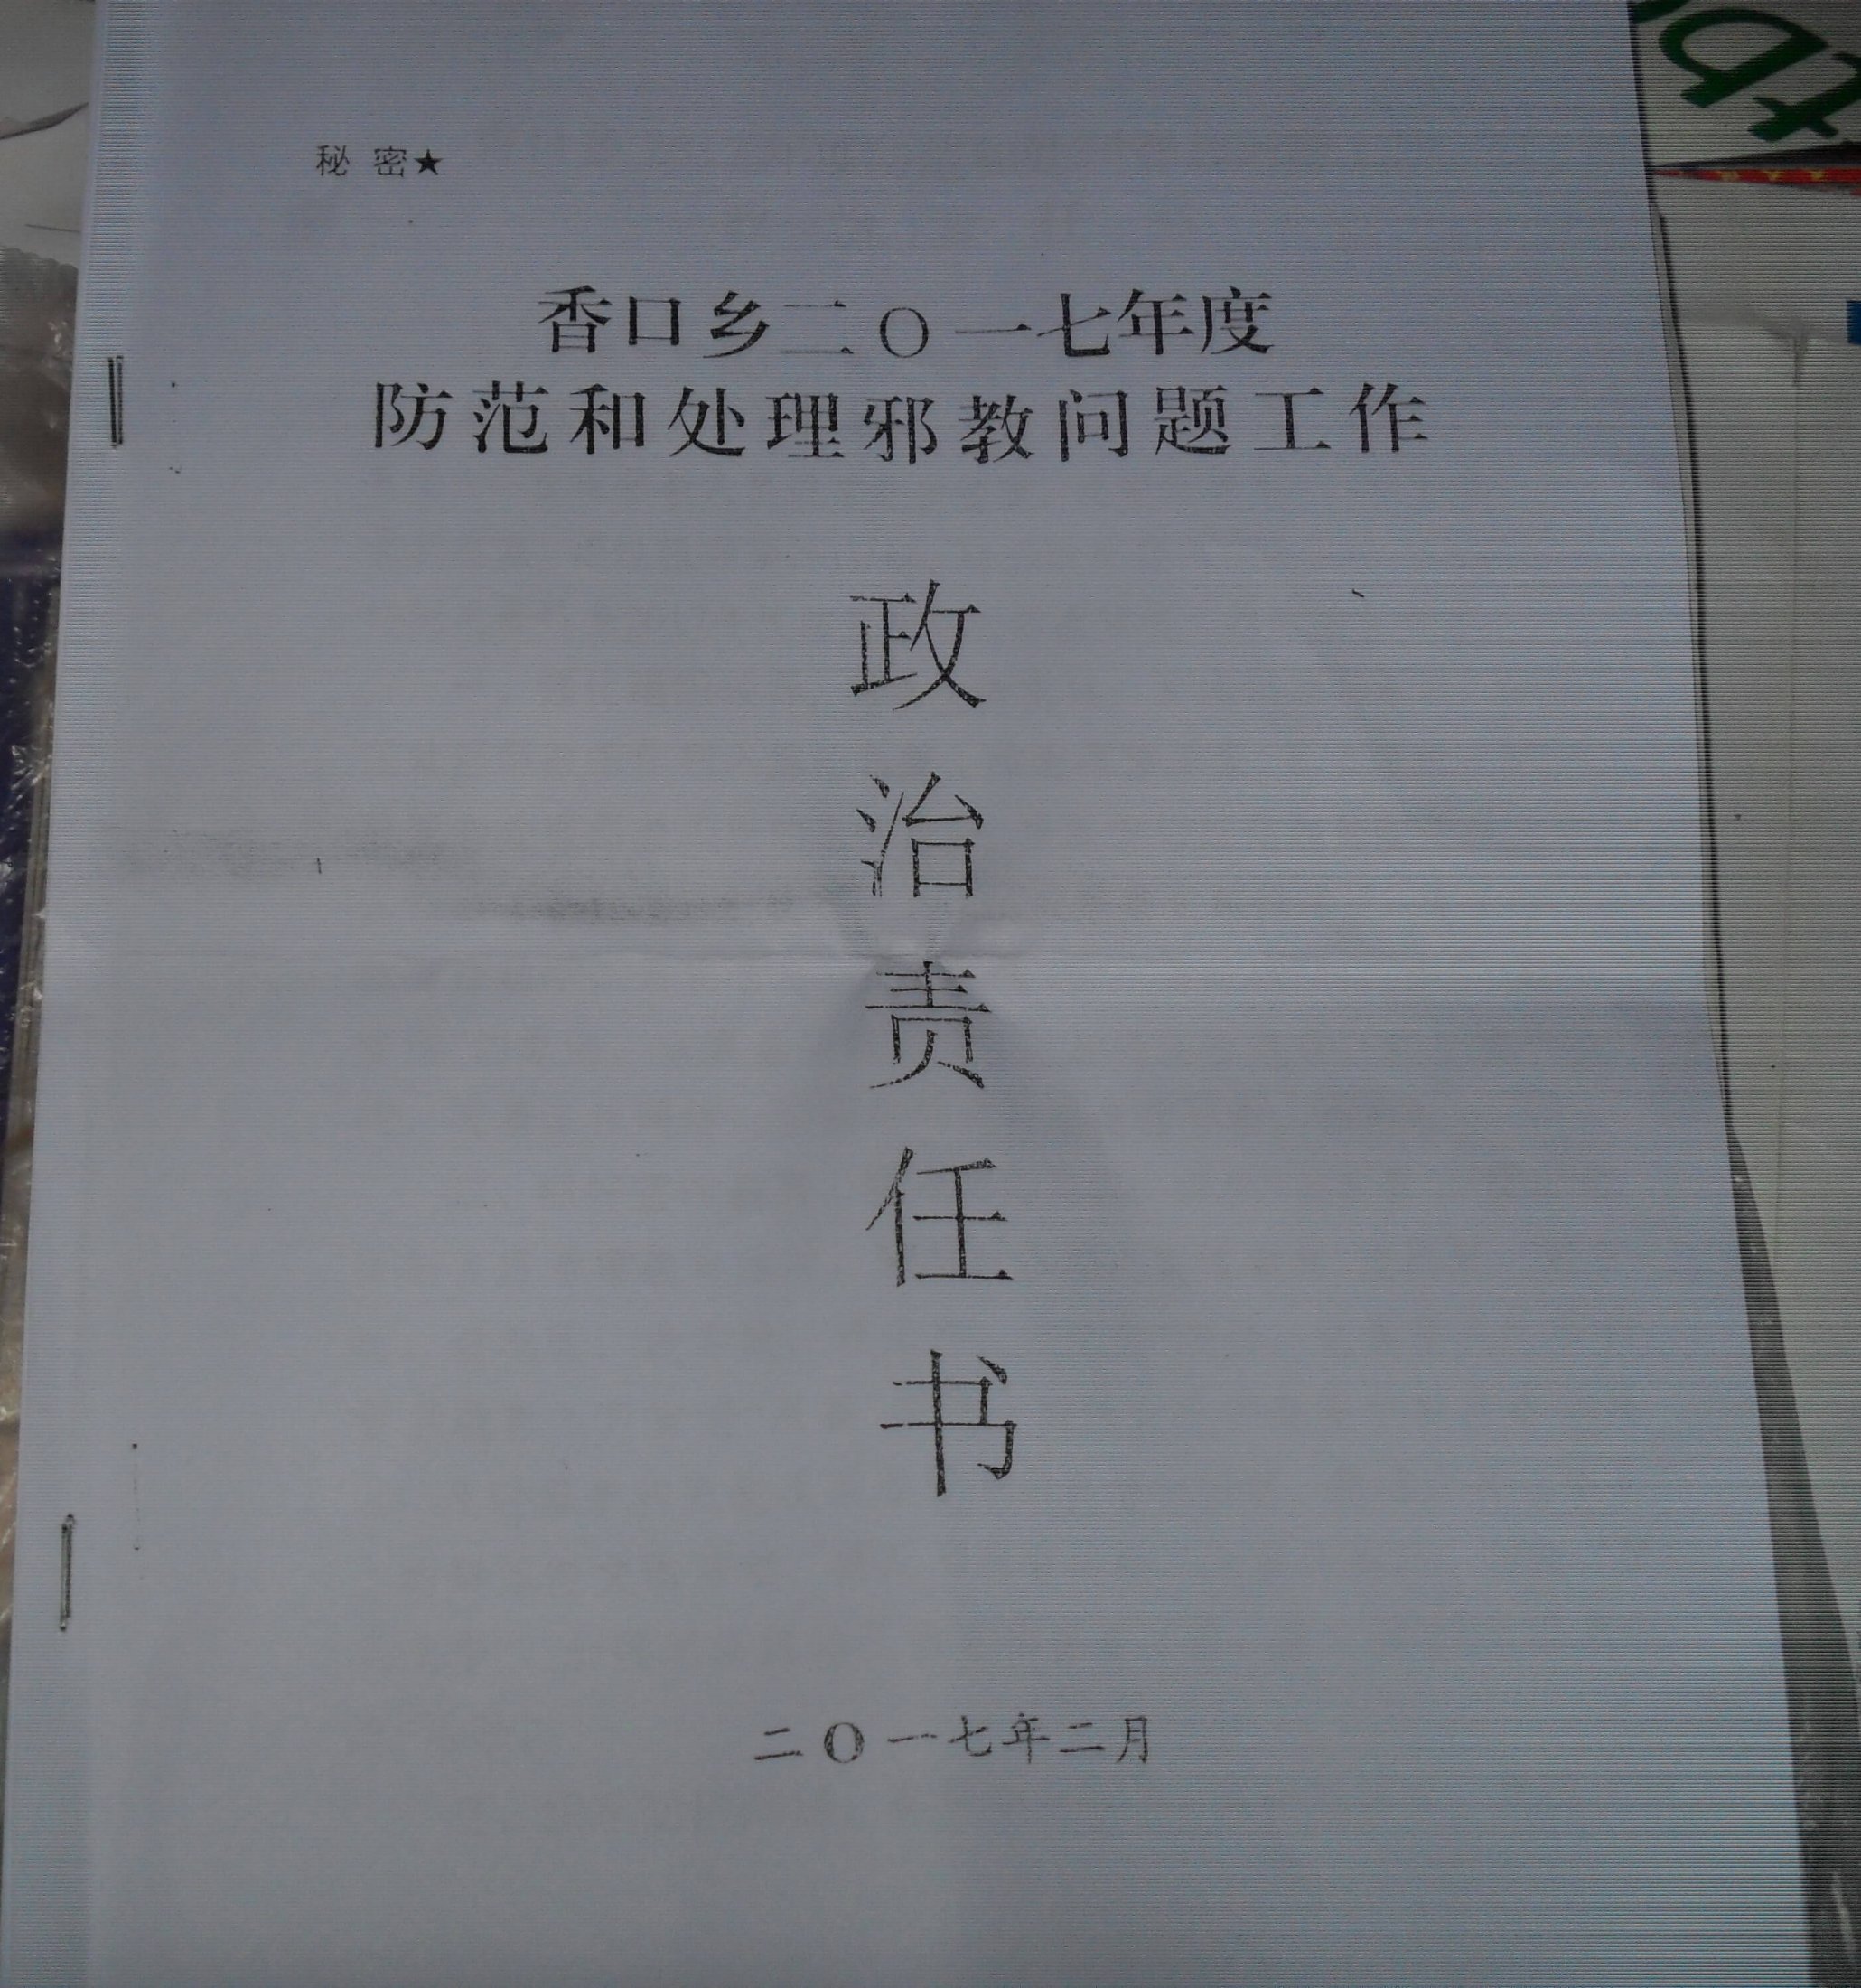 秘 密★
香口乡二〇一七年度
防范和处理邪教问题工作
政
治
责
任
书
二〇一七年二月